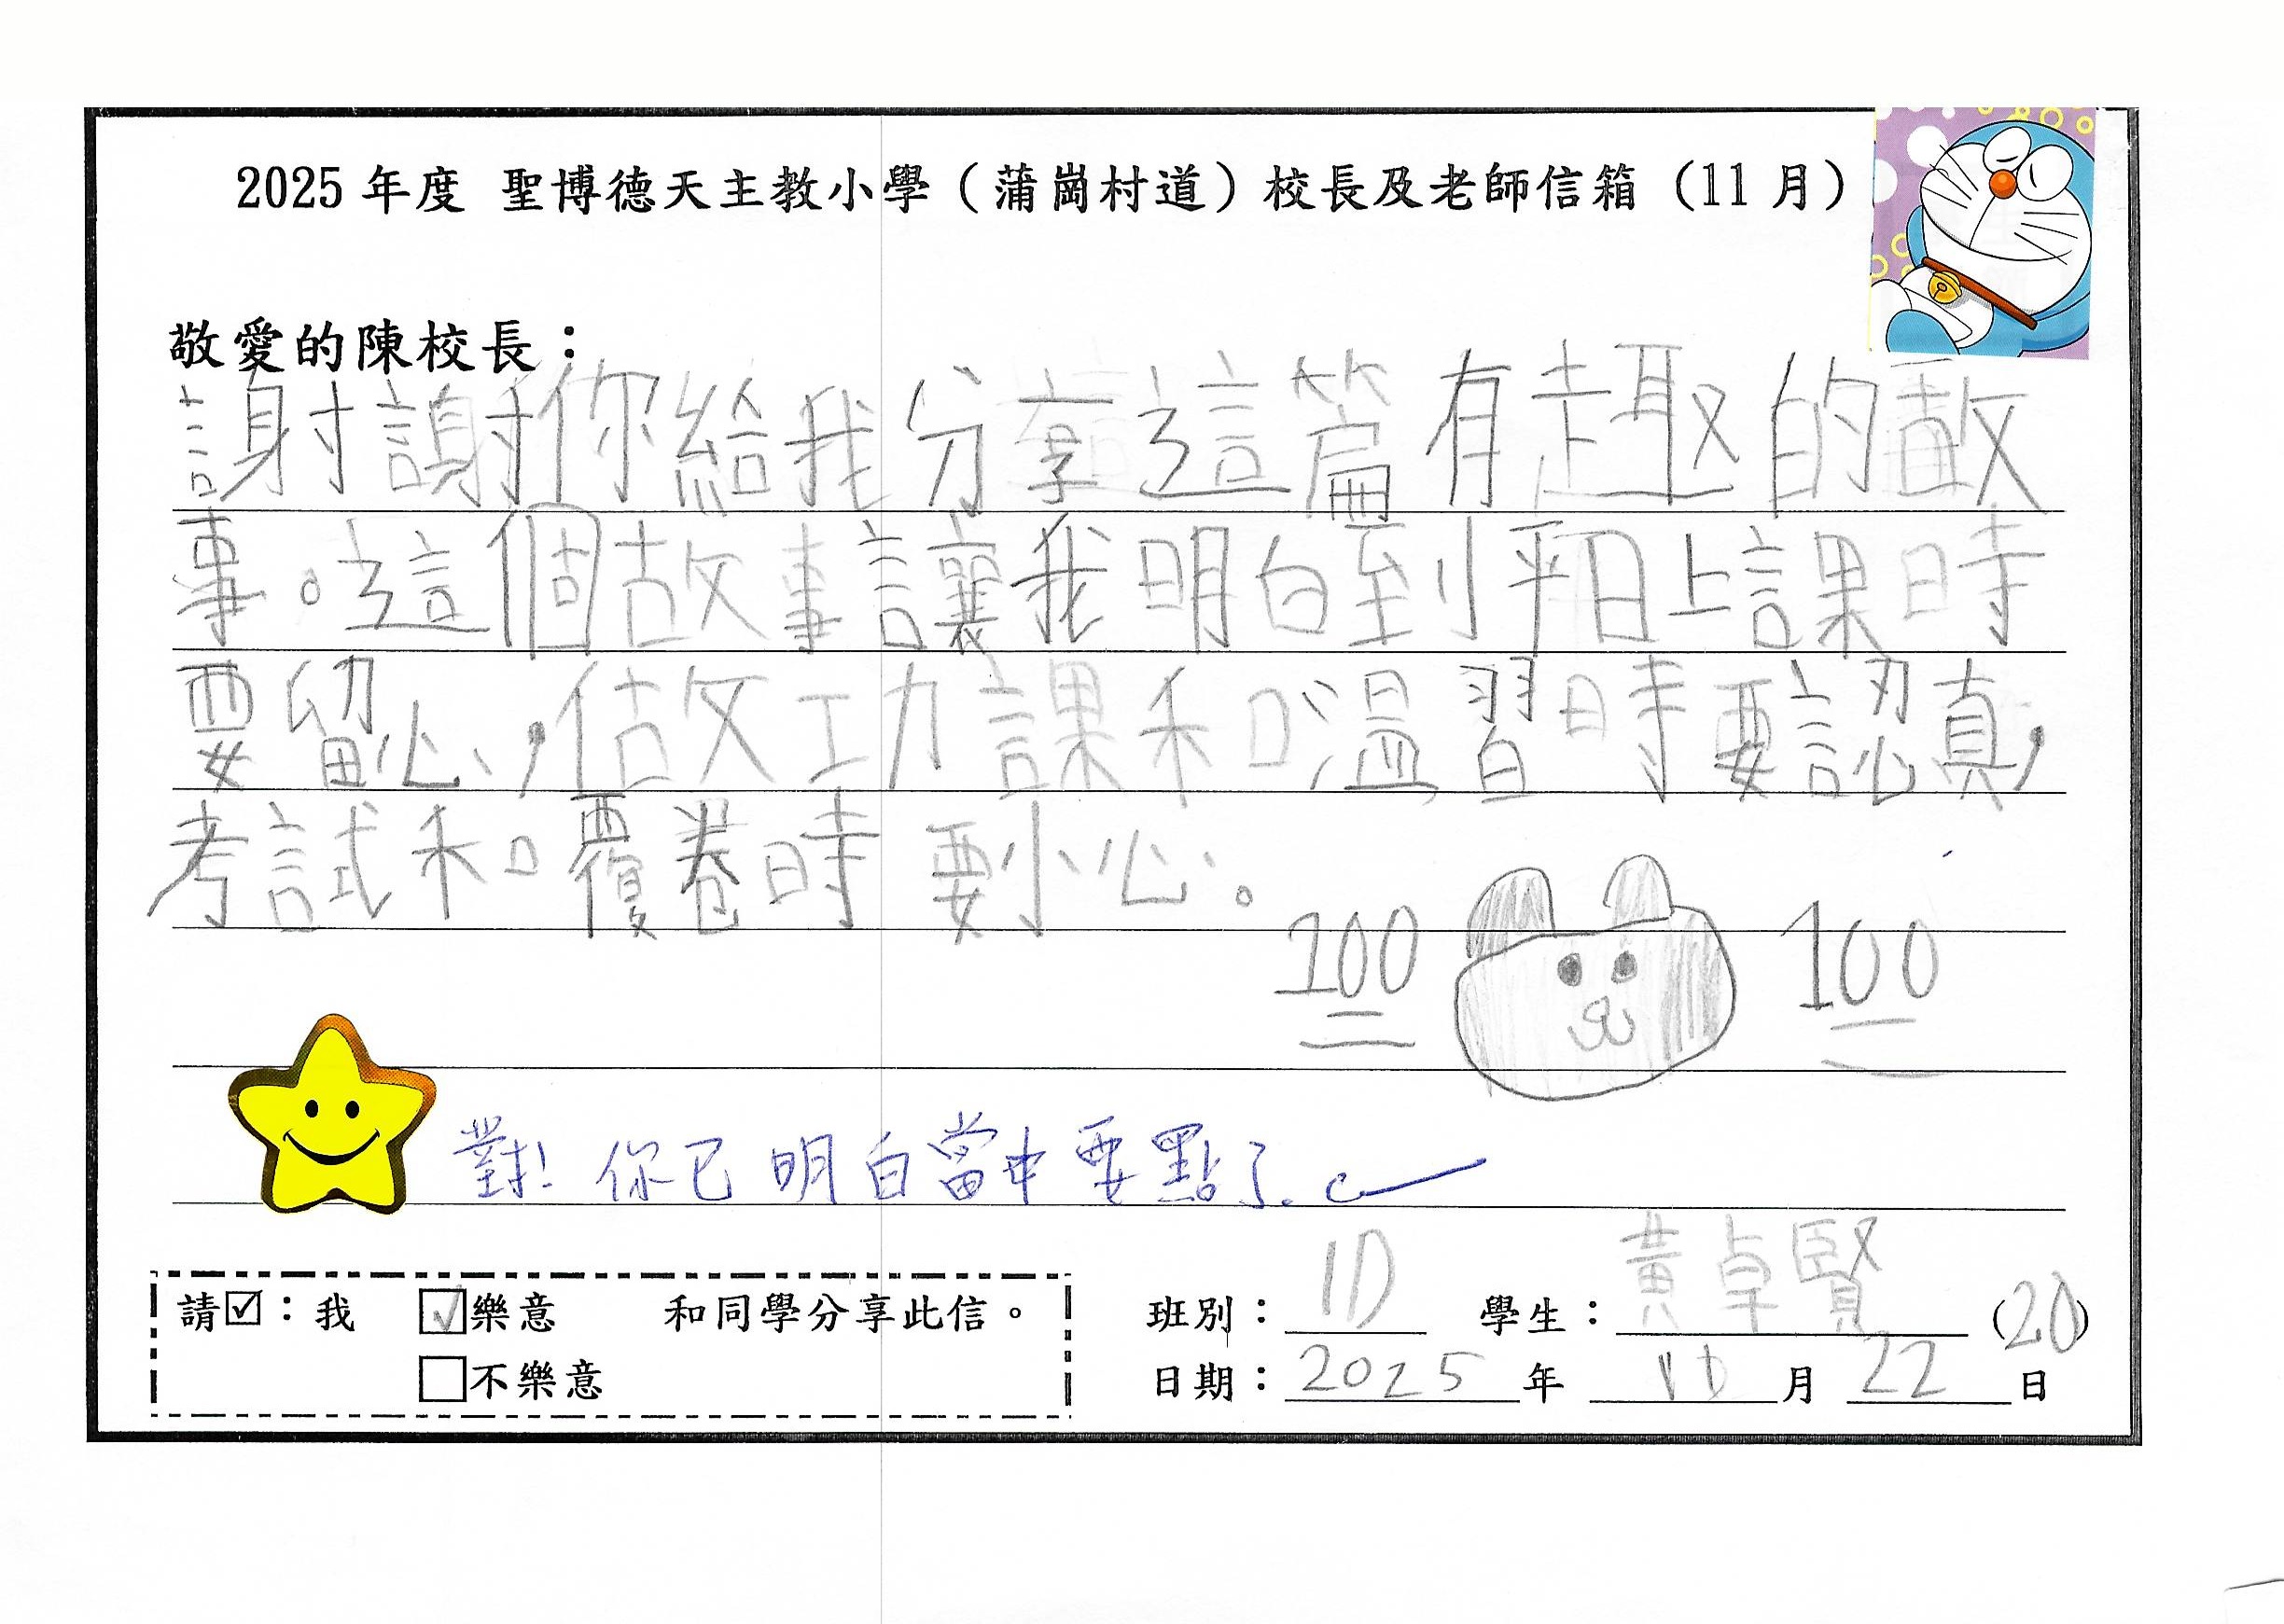 2025 年度 聖博德天主教小學（蒲崗村道）校長及老師信箱（11 月）
敬愛的陳校長：
謝謝你給我分享這篇有趣的故
事。這個故事讓我明白到平日上課時
要留心，做功課和溫習時要認真，
考試和覆卷時要小心。
100 100
對！你已明白當中要點了。
請☑：我 ☑樂意 和同學分享此信。
□不樂意
班別：1D 學生：黃卓賢（20）
日期：2025年 月 22日